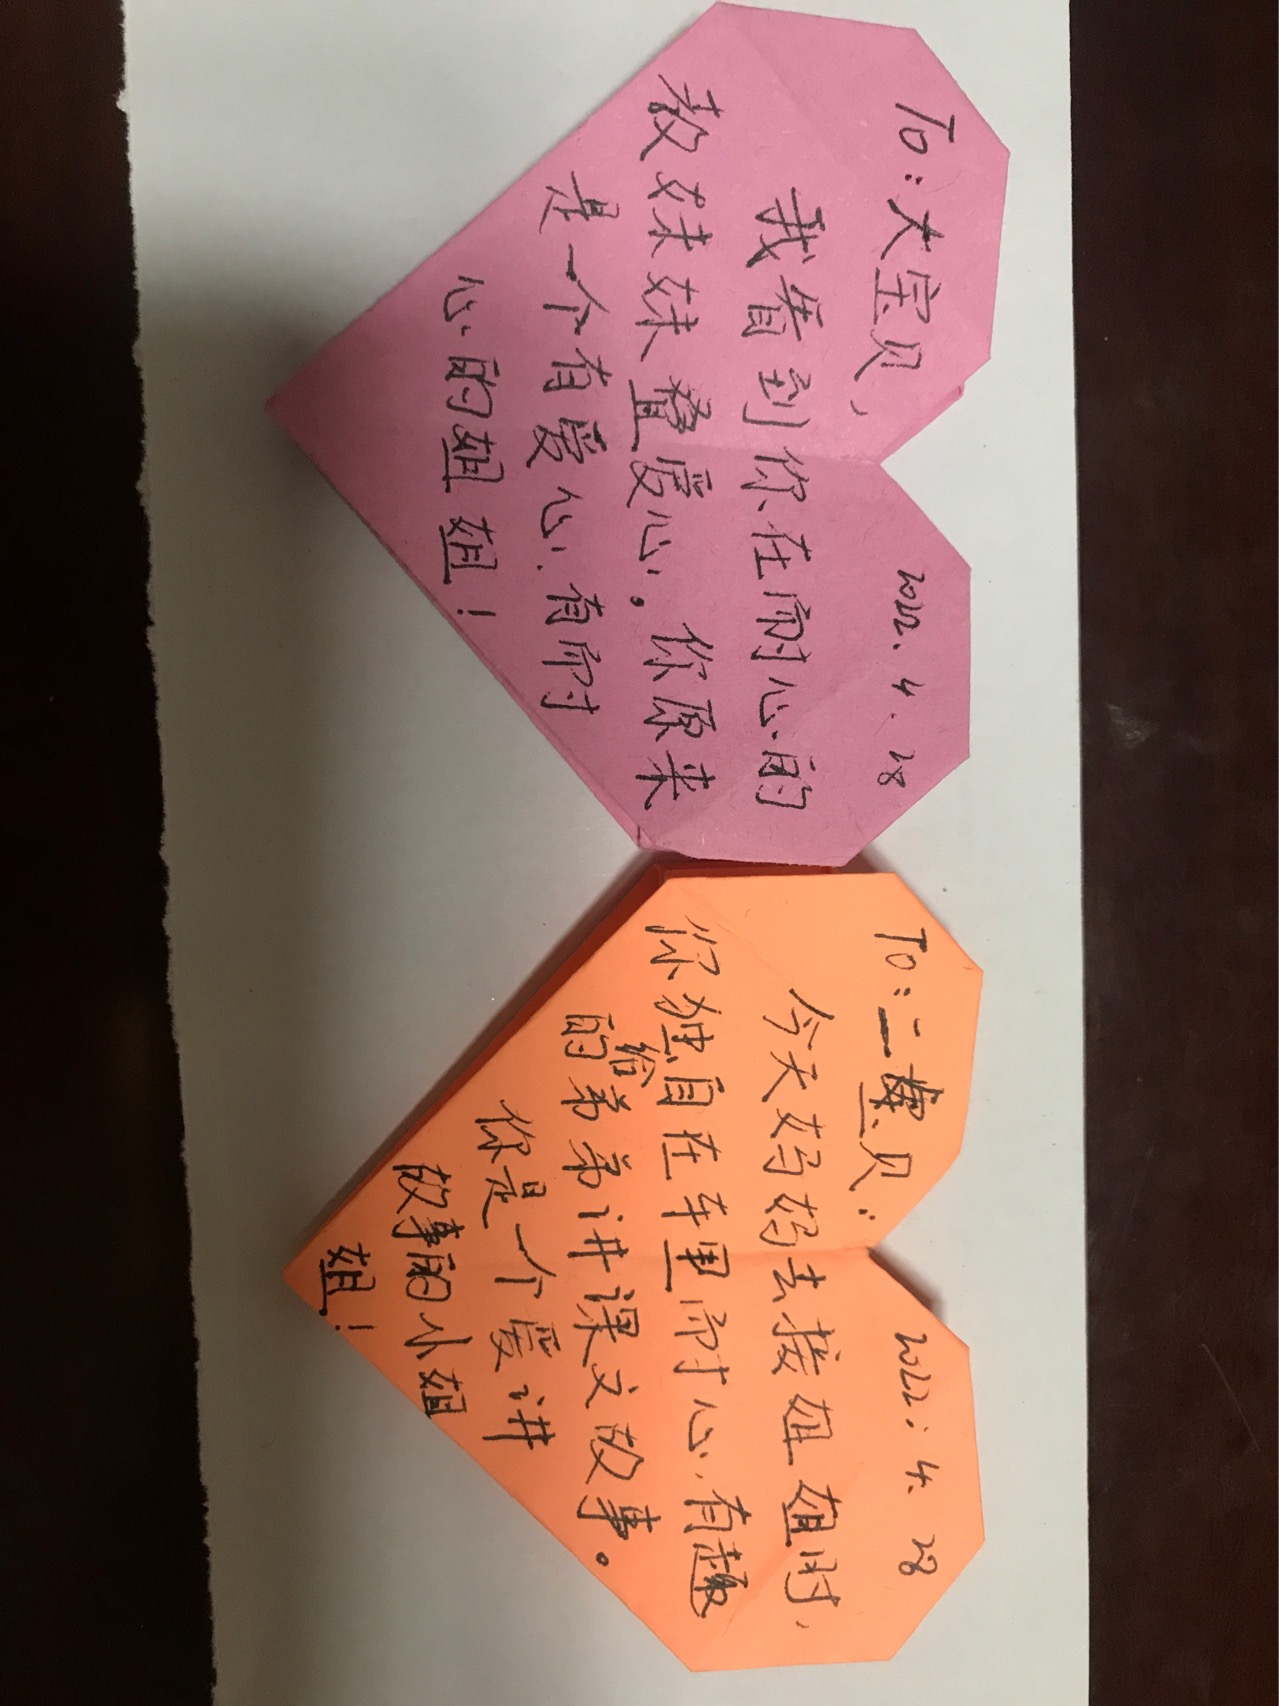 2022.4.28
To:大宝贝,
我看到你在耐心的
教妹妹叠爱心。你原来
是一个有爱心.有耐
心的姐姐!
2022.4.28
To:二宝贝:
今天妈妈去接姐姐时,
你独自在车里耐心,有趣
的给弟弟讲课文故事。
你是一个爱讲
故事的小姐
姐!